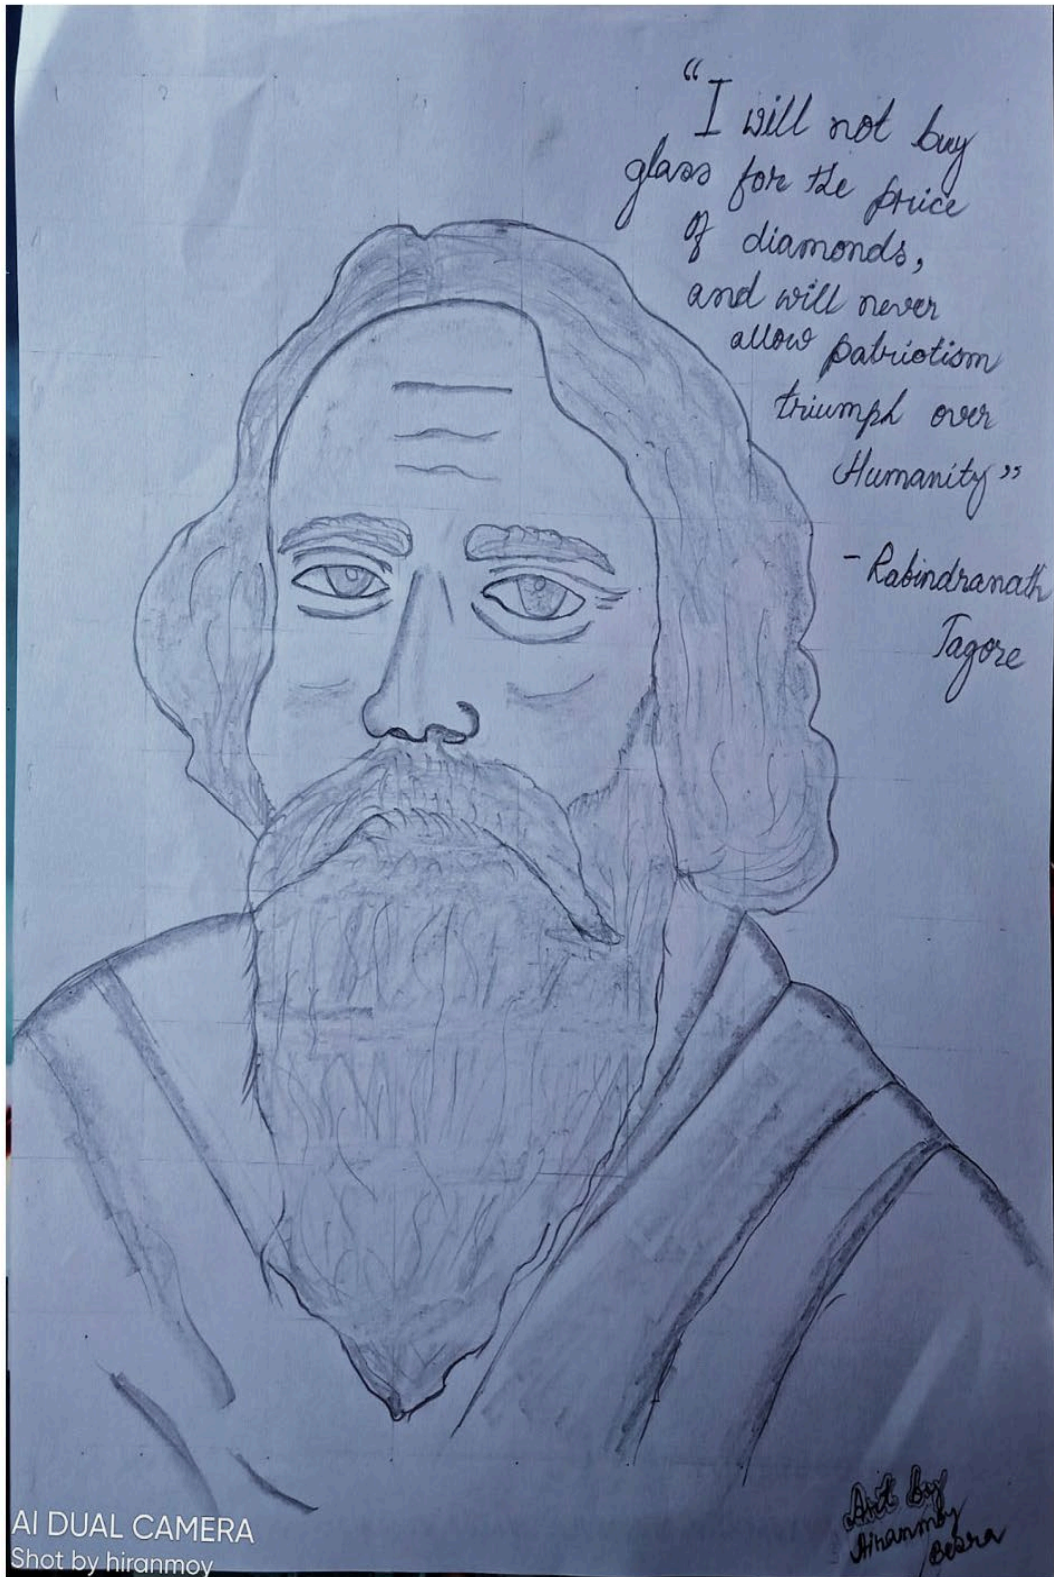 “I will not buy
glass for the price
of diamonds,
and will never
allow patriotism
triumph over
Humanity”
- Rabindranath
Tagore
Art by
Hiranmoy
Besra
AI DUAL CAMERA
Shot by hiranmoy